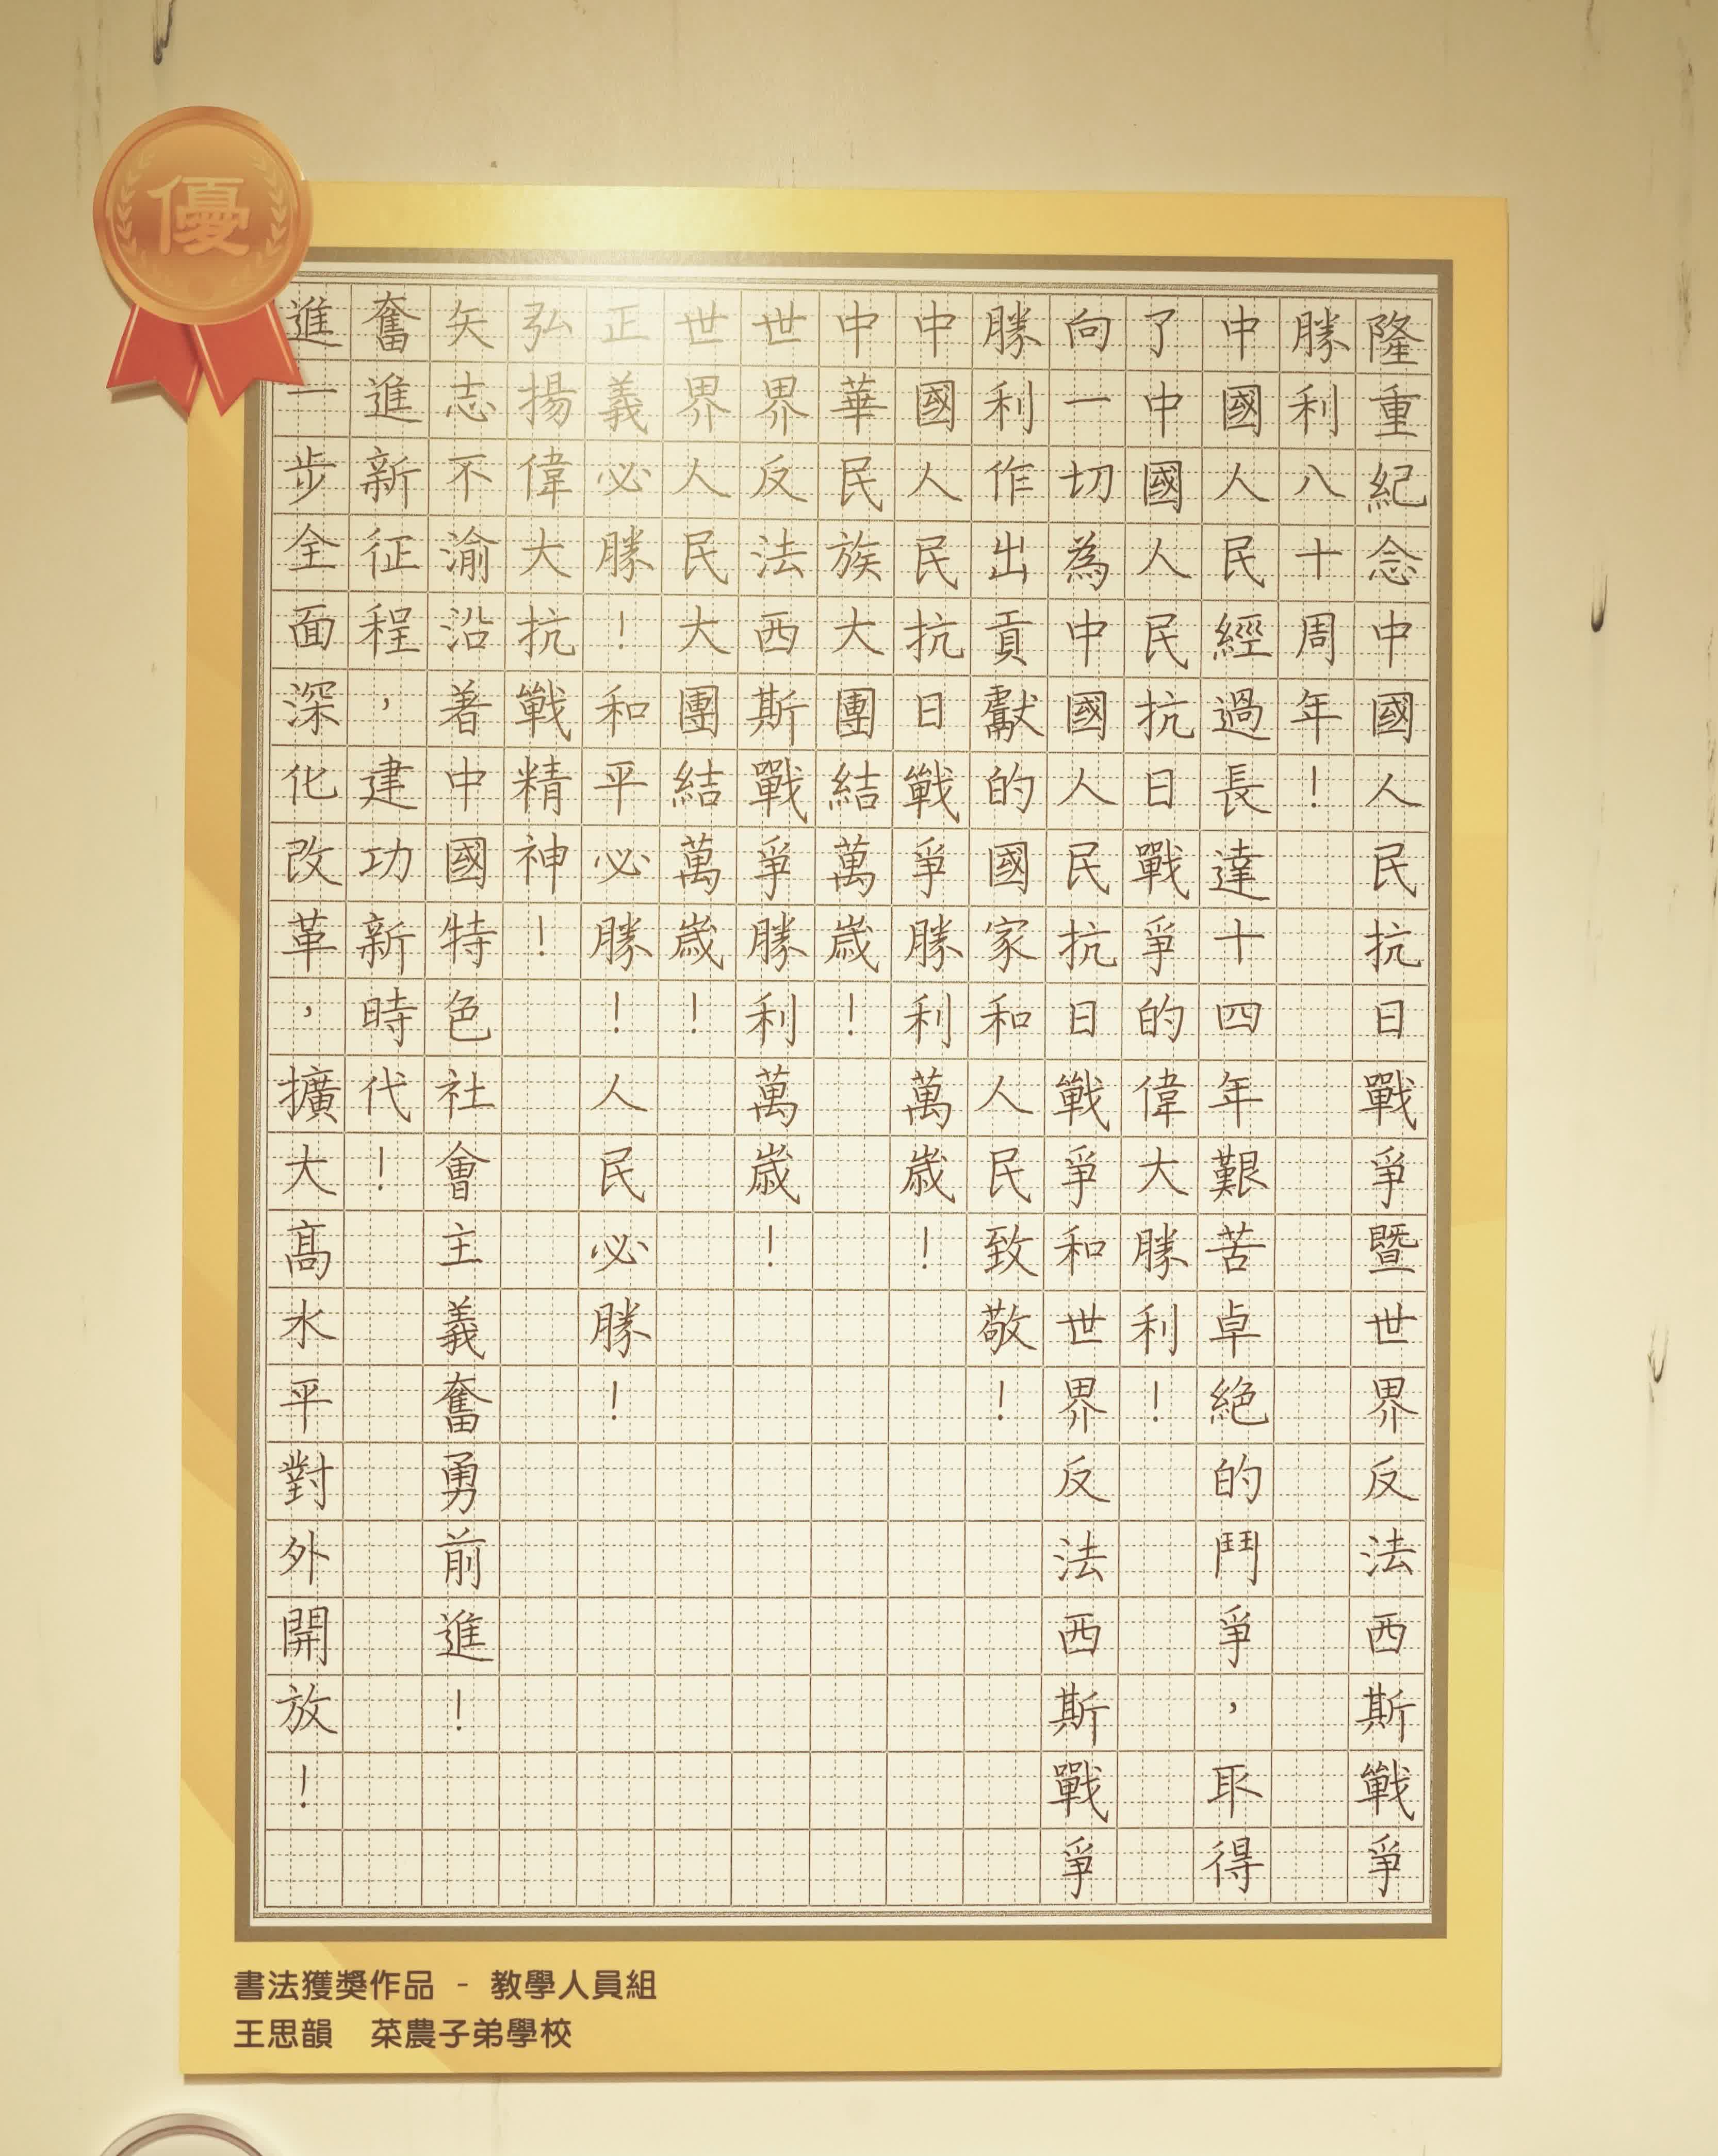 優
隆重紀念中國人民抗日戰爭暨世界反法西斯戰爭
勝利八十周年！
中國人民經過長達十四年艱苦卓絕的鬥爭，取得
了中國人民抗日戰爭的偉大勝利！
向一切為中國人民抗日戰爭和世界反法西斯戰爭
勝利作出貢獻的國家和人民致敬！
中國人民抗日戰爭勝利萬歲！
中華民族大團結萬歲！
世界反法西斯戰爭勝利萬歲！
世界人民大團結萬歲！
正義必勝！和平必勝！人民必勝！
弘揚偉大抗戰精神！
矢志不渝沿著中國特色社會主義奮勇前進！
奮進新征程，建功新時代！
進一步全面深化改革，擴大高水平對外開放！
書法獲獎作品 - 教學人員組
王思韻 菜農子弟學校